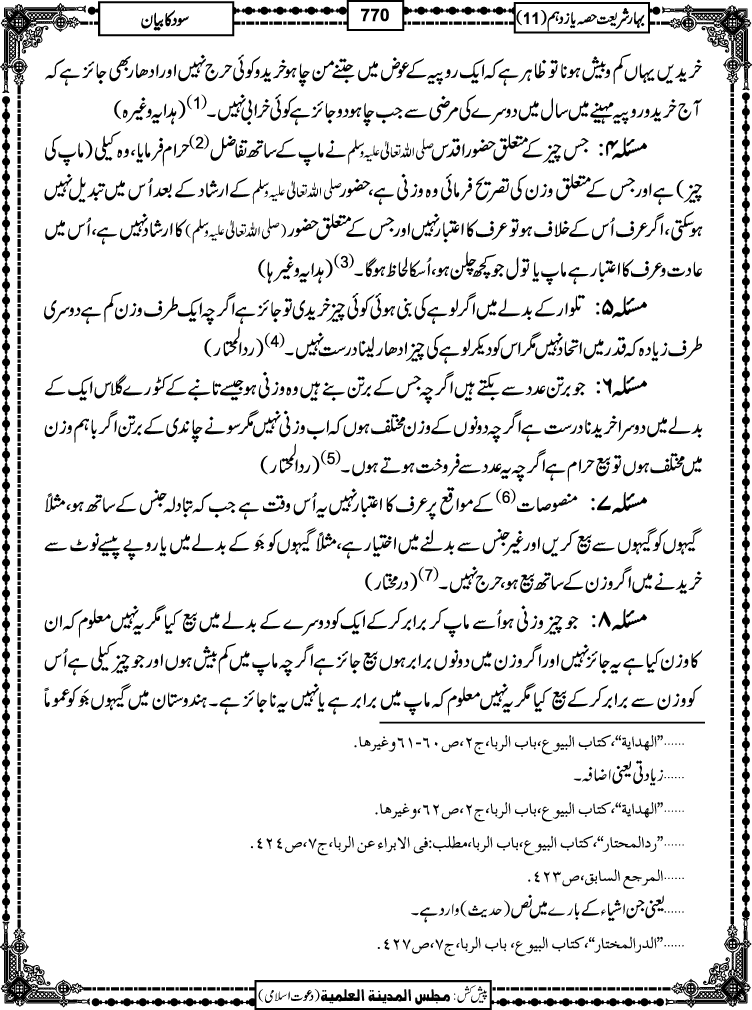 بہارِ شریعت حصہ یازدہم (11)
770
سود کا بیان
خریدیں یہاں کم و بیش ہونا تو ظاہر ہے کہ ایک روپیہ کے عوض میں جتنے من چاہو خریدو کوئی حرج نہیں اور ادھار بھی جائز ہے کہ
آج خریدو روپیہ مہینے میں سال میں دوسرے کی مرضی سے جب چاہو دو جائز ہے کوئی خرابی نہیں۔(1) (ہدایہ وغیرہ)
مسئلہ ۴: جس چیز کے متعلق حضور اقدس صلی اللہ تعالیٰ علیہ وسلم نے ماپ کے ساتھ تفاضل(2) حرام فرمایا، وہ کیلی (ماپ کی
چیز) ہے اور جس کے متعلق وزن کی تصریح فرمائی وہ وزنی ہے، حضور صلی اللہ تعالیٰ علیہ وسلم کے ارشاد کے بعد اُس میں تبدیل نہیں
ہوسکتی، اگر عرف اُس کے خلاف ہو تو عرف کا اعتبار نہیں اور جس کے متعلق حضور (صلی اللہ تعالیٰ علیہ وسلم) کا ارشاد نہیں ہے، اُس میں
عادت و عرف کا اعتبار ہے ماپ یا تول جو کچھ چلن ہو، اُسکا لحاظ ہوگا۔(3) (ہدایہ وغیرہا)
مسئلہ ۵: تلوار کے بدلے میں اگر لوہے کی بنی ہوئی کوئی چیز خریدی تو جائز ہے اگرچہ ایک طرف وزن کم ہے دوسری
طرف زیادہ کہ قدر میں اتحاد نہیں مگر اس کو دیکر لوہے کی چیز ادھار لینا درست نہیں۔(4) (ردالمحتار)
مسئلہ ۶: جو برتن عدد سے بکتے ہیں اگرچہ جس کے برتن بنے ہیں وہ وزنی ہو جیسے تانبے کے کٹورے گلاس ایک کے
بدلے میں دوسرا خریدنا درست ہے اگرچہ دونوں کے وزن مختلف ہوں کہ اب وزنی نہیں مگر سونے چاندی کے برتن اگر باہم وزن
میں مختلف ہوں تو بیع حرام ہے اگرچہ یہ عدد سے فروخت ہوتے ہوں۔(5) (ردالمحتار)
مسئلہ ۷: منصوصات(6) کے مواقع پر عرف کا اعتبار نہیں یہ اُس وقت ہے جب کہ تبادلہ جنس کے ساتھ ہو، مثلاً
گیہوں کو گیہوں سے بیع کریں اور غیر جنس سے بدلنے میں اختیار ہے، مثلاً گیہوں کو جَو کے بدلے میں یا روپے پیسے نوٹ سے
خریدنے میں اگر وزن کے ساتھ بیع ہو، حرج نہیں۔(7) (درمختار)
مسئلہ ۸: جو چیز وزنی ہو اُسے ماپ کر برابر کرکے ایک کو دوسرے کے بدلے میں بیع کیا مگر یہ نہیں معلوم کہ ان
کا وزن کیا ہے یہ جائز نہیں اور اگر وزن میں دونوں برابر ہوں بیع جائز ہے اگرچہ ماپ میں کم بیش ہوں اور جو چیز کیلی ہے اُس
کو وزن سے برابر کرکے بیع کیا مگر یہ نہیں معلوم کہ ماپ میں برابر ہے یا نہیں یہ ناجائز ہے۔ ہندوستان میں گیہوں جَو کو عموماً
......"الھدایۃ"، کتاب البیوع، باب الربا، ج۲، ص۶۰-۶۱ وغیرھا.
......زیادتی یعنی اضافہ۔
......"الھدایۃ"، کتاب البیوع، باب الربا، ج۲، ص۶۲، وغیرھا.
......"ردالمحتار"، کتاب البیوع، باب الربا، مطلب: فی الابراء عن الربا، ج۷، ص۴۲۴.
......المرجع السابق، ص۴۲۳.
......یعنی جن اشیاء کے بارے میں نص (حدیث) وارد ہے۔
......"الدرالمختار"، کتاب البیوع، باب الربا، ج۷، ص۴۲۷.
پیش کش: مجلس المدینۃ العلمیۃ (دعوت اسلامی)